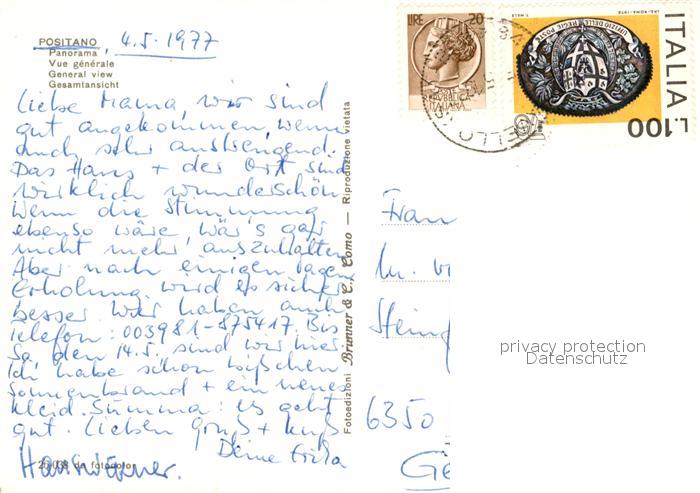 POSITANO, 4.5.1977
Panorama
Vue générale
General view
Gesamtansicht
Liebe Mama, wir sind
gut angekommen, wenn
auch sehr anstrengend.
Das Haus + der Ort sind
wirklich wunderschön
Wenn die Stimmung
ebenso wäre wär's gar
nicht mehr auszuhalten
Aber nach einigen Tagen
Erholung wird es sicher
besser. Wir haben auch
Telefon: 003981-875417. Bis
Sa den 14.5. sind wir hier.
Ich habe schon bißchen
Sonnenbrand + ein neues
Kleid. Summa: es geht
gut. Lieben Gruß + Kuß
Deine
20.038 da fotocolor
Fotoedizioni Brunner & C. Como — Riproduzione vietata
LIRE 20
REPUBBLICA
ITALIANA
I.P.S.-ROMA-1976
T. MELE
UFFIZIO DELLE REGIE POSTE
ITALIA L.100
Frau
Stein
6350
privacy protection
Datenschutz